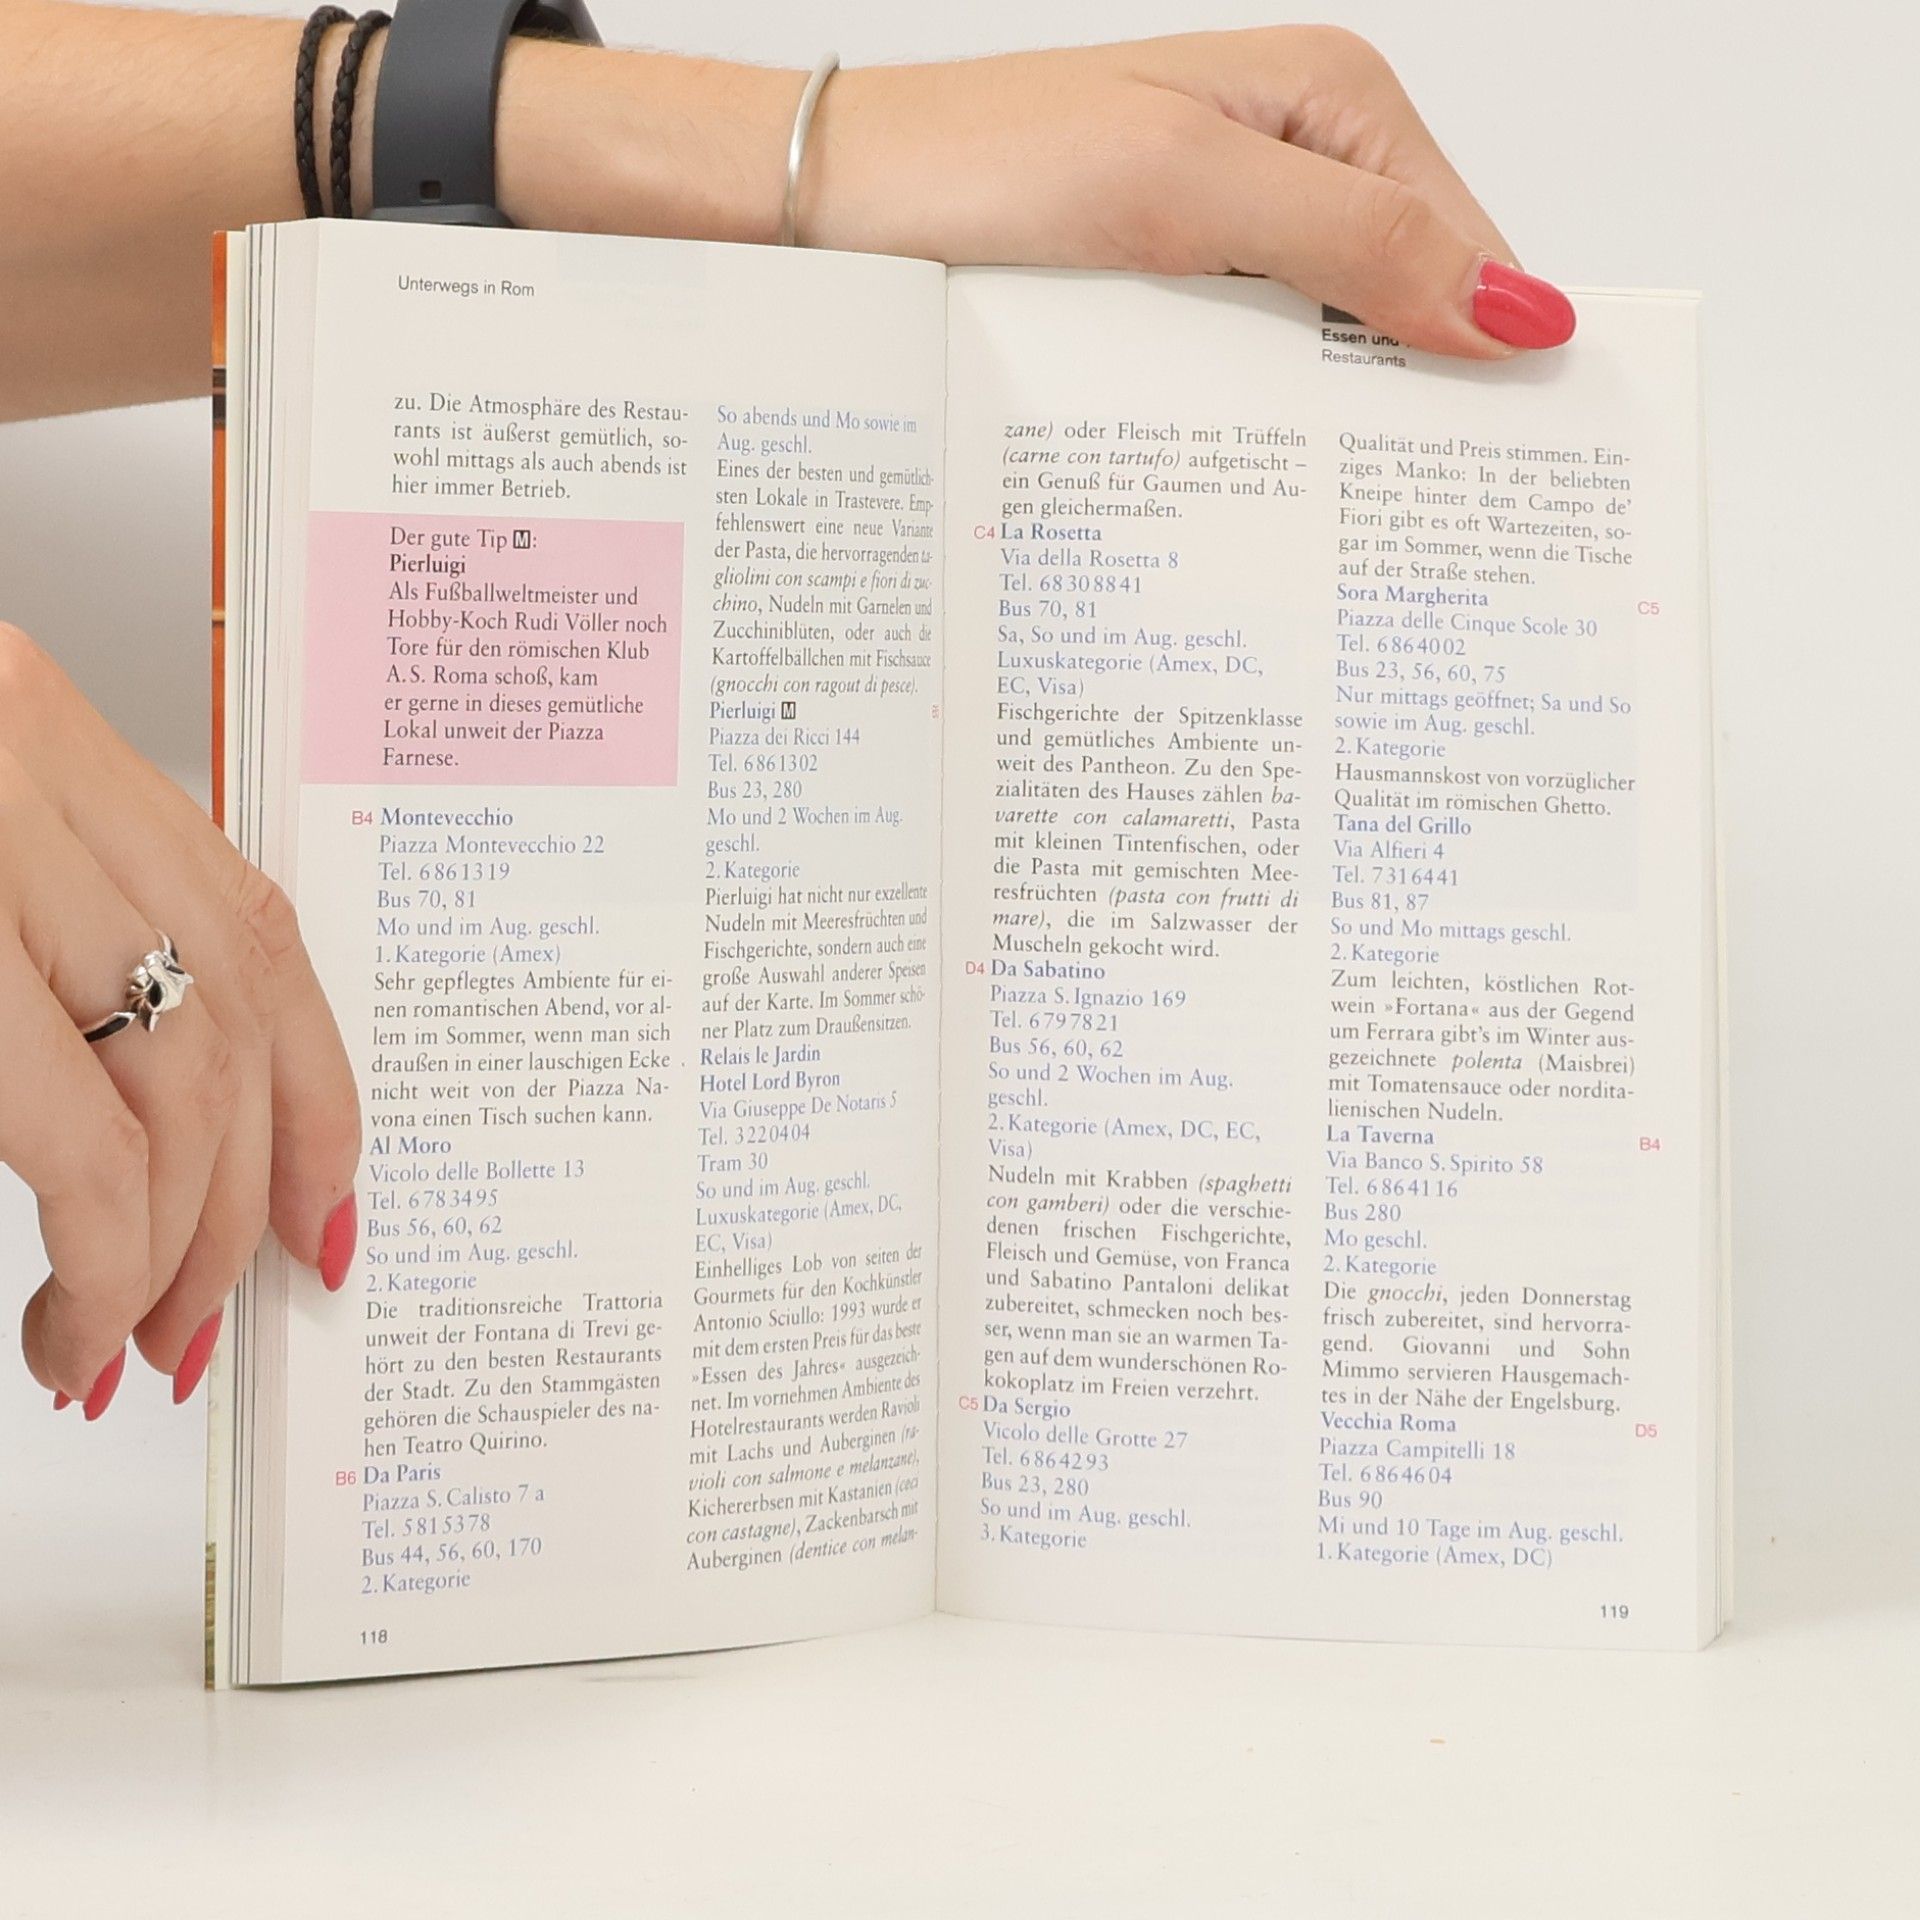 Unterwegs in Rom
zu. Die Atmosphäre des Restau-
rants ist äußerst gemütlich, so-
wohl mittags als auch abends ist
hier immer Betrieb.
Der gute Tip M:
Pierluigi
Als Fußballweltmeister und
Hobby-Koch Rudi Völler noch
Tore für den römischen Klub
A.S. Roma schoß, kam
er gerne in dieses gemütliche
Lokal unweit der Piazza
Farnese.
B4 Montevecchio
Piazza Montevecchio 22
Tel. 6861319
Bus 70, 81
Mo und im Aug. geschl.
1. Kategorie (Amex)
Sehr gepflegtes Ambiente für ei-
nen romantischen Abend, vor al-
lem im Sommer, wenn man sich
draußen in einer lauschigen Ecke
nicht weit von der Piazza Na-
vona einen Tisch suchen kann.
Al Moro
Vicolo delle Bollette 13
Tel. 6783495
Bus 56, 60, 62
So und im Aug. geschl.
2. Kategorie
Die traditionsreiche Trattoria
unweit der Fontana di Trevi ge-
hört zu den besten Restaurants
der Stadt. Zu den Stammgästen
gehören die Schauspieler des na-
hen Teatro Quirino.
B6 Da Paris
Piazza S. Calisto 7 a
Tel. 5815378
Bus 44, 56, 60, 170
2. Kategorie
118
So abends und Mo sowie im
Aug. geschl.
Eines der besten und gemütlich-
sten Lokale in Trastevere. Emp-
fehlenswert eine neue Variante
der Pasta, die hervorragenden ta-
gliolini con scampi e fiori di zuc-
chino, Nudeln mit Garnelen und
Zucchiniblüten, oder auch die
Kartoffelbällchen mit Fischsauce
(gnocchi con ragout di pesce).
Pierluigi M
Piazza dei Ricci 144
Tel. 6861302
Bus 23, 280
Mo und 2 Wochen im Aug.
geschl.
2. Kategorie
Pierluigi hat nicht nur exzellente
Nudeln mit Meeresfrüchten und
Fischgerichte, sondern auch eine
große Auswahl anderer Speisen
auf der Karte. Im Sommer schö-
ner Platz zum Draußensitzen.
Relais le Jardin
Hotel Lord Byron
Via Giuseppe De Notaris 5
Tel. 3220404
Tram 30
So und im Aug. geschl.
Luxuskategorie (Amex, DC,
EC, Visa)
Einhelliges Lob von seiten der
Gourmets für den Kochkünstler
Antonio Sciullo: 1993 wurde er
mit dem ersten Preis für das beste
»Essen des Jahres« ausgezeich-
net. Im vornehmen Ambiente des
Hotelrestaurants werden Ravioli
mit Lachs und Auberginen (ra-
violi con salmone e melanzane),
Kichererbsen mit Kastanien (ceci
con castagne), Zackenbarsch mit
Auberginen (dentice con melan-
Essen und
Restaurants
zane) oder Fleisch mit Trüffeln
(carne con tartufo) aufgetischt –
ein Genuß für Gaumen und Au-
gen gleichermaßen.
C4 La Rosetta
Via della Rosetta 8
Tel. 68308841
Bus 70, 81
Sa, So und im Aug. geschl.
Luxuskategorie (Amex, DC,
EC, Visa)
Fischgerichte der Spitzenklasse
und gemütliches Ambiente un-
weit des Pantheon. Zu den Spe-
zialitäten des Hauses zählen ba-
varette con calamaretti, Pasta
mit kleinen Tintenfischen, oder
die Pasta mit gemischten Mee-
resfrüchten (pasta con frutti di
mare), die im Salzwasser der
Muscheln gekocht wird.
D4 Da Sabatino
Piazza S. Ignazio 169
Tel. 6797821
Bus 56, 60, 62
So und 2 Wochen im Aug.
geschl.
2. Kategorie (Amex, DC, EC,
Visa)
Nudeln mit Krabben (spaghetti
con gamberi) oder die verschie-
denen frischen Fischgerichte,
Fleisch und Gemüse, von Franca
und Sabatino Pantaloni delikat
zubereitet, schmecken noch bes-
ser, wenn man sie an warmen Ta-
gen auf dem wunderschönen Ro-
kokoplatz im Freien verzehrt.
C5 Da Sergio
Vicolo delle Grotte 27
Tel. 6864293
Bus 23, 280
So und im Aug. geschl.
3. Kategorie
Qualität und Preis stimmen. Ein-
ziges Manko: In der beliebten
Kneipe hinter dem Campo de'
Fiori gibt es oft Wartezeiten, so-
gar im Sommer, wenn die Tische
auf der Straße stehen.
Sora Margherita C5
Piazza delle Cinque Scole 30
Tel. 6864002
Bus 23, 56, 60, 75
Nur mittags geöffnet; Sa und So
sowie im Aug. geschl.
2. Kategorie
Hausmannskost von vorzüglicher
Qualität im römischen Ghetto.
Tana del Grillo
Via Alfieri 4
Tel. 7316441
Bus 81, 87
So und Mo mittags geschl.
2. Kategorie
Zum leichten, köstlichen Rot-
wein »Fortana« aus der Gegend
um Ferrara gibt's im Winter aus-
gezeichnete polenta (Maisbrei)
mit Tomatensauce oder nordita-
lienischen Nudeln.
La Taverna B4
Via Banco S. Spirito 58
Tel. 6864116
Bus 280
Mo geschl.
2. Kategorie
Die gnocchi, jeden Donnerstag
frisch zubereitet, sind hervorra-
gend. Giovanni und Sohn
Mimmo servieren Hausgemach-
tes in der Nähe der Engelsburg.
Vecchia Roma D5
Piazza Campitelli 18
Tel. 6864604
Bus 90
Mi und 10 Tage im Aug. geschl.
1. Kategorie (Amex, DC)
119